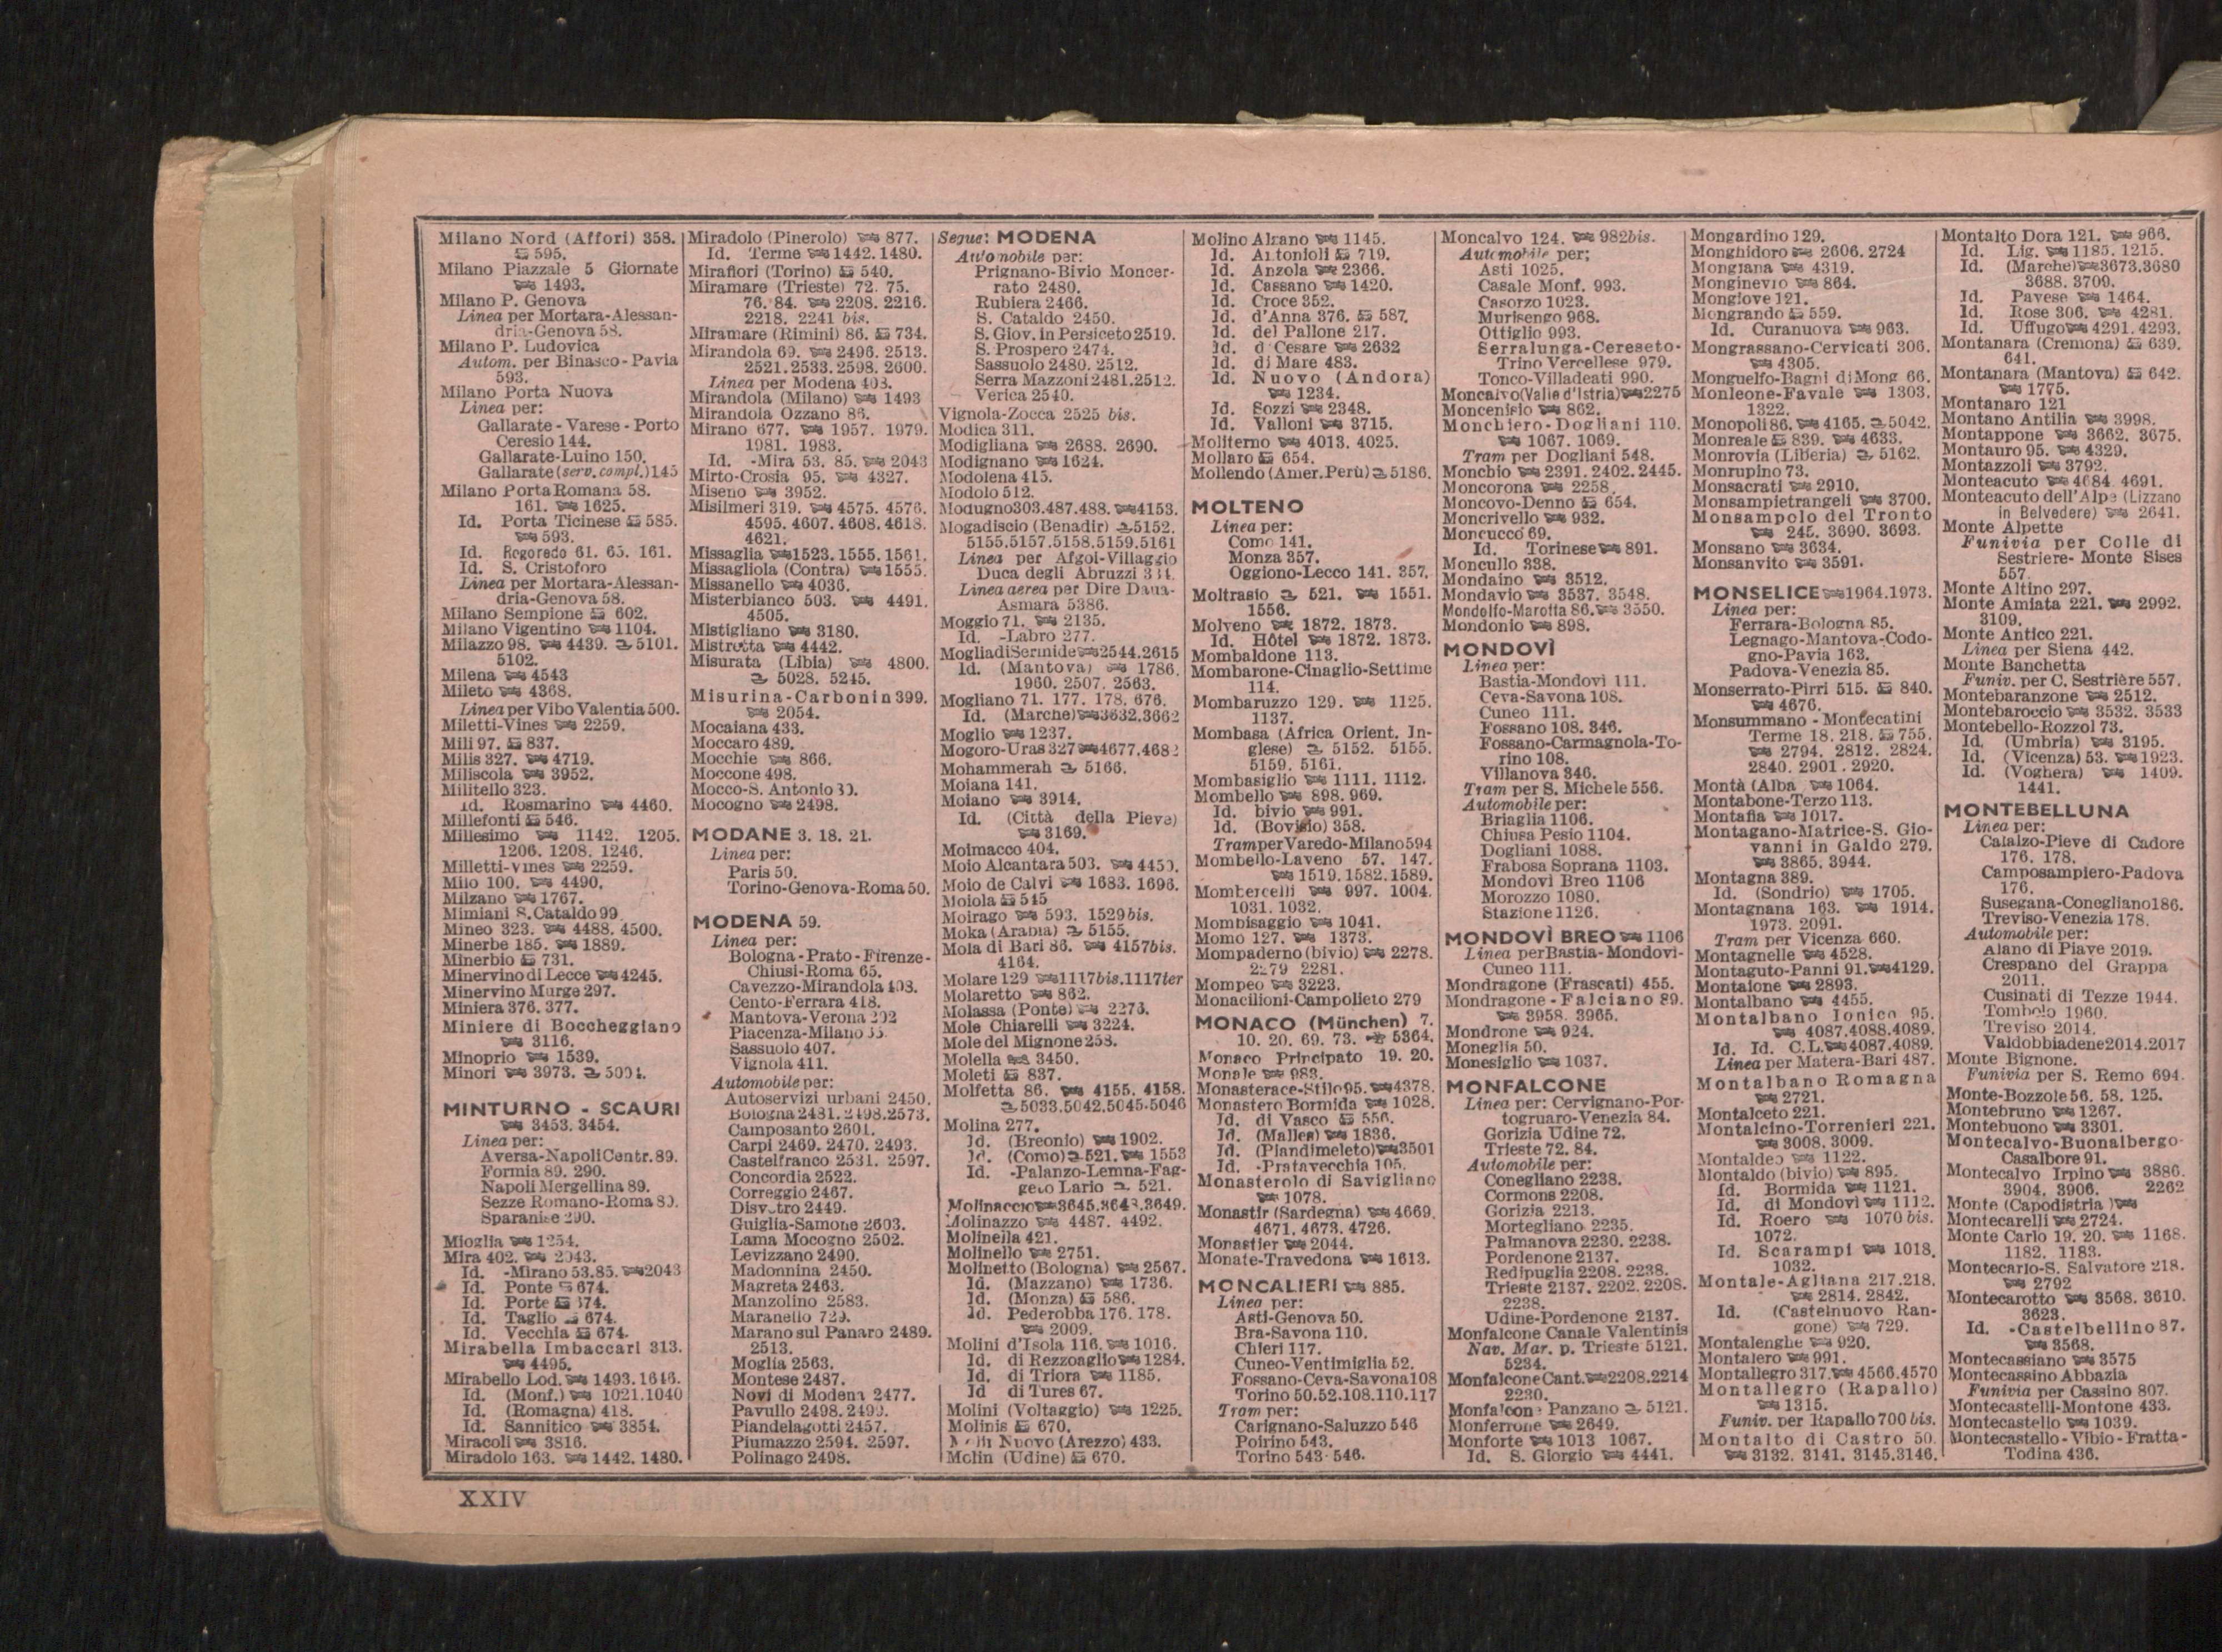 Milano Nord (Affori) 358.
595.
Milano Piazzale 5 Giornate
1493.
Milano P. Genova
Linea per Mortara-Alessan-
dria-Genova 58.
Milano P. Ludovica
Autom. per Binasco-Pavia
593.
Milano Porta Nuova
Linea per:
Gallarate - Varese - Porto
Ceresio 144.
Gallarate-Luino 150.
Gallarate (serv. compl.) 145
Milano Porta Romana 58.
161. 1625.
Id. Porta Ticinese 585.
593.
Id. Rogoredo 61. 65. 161.
Id. S. Cristoforo
Linea per Mortara-Alessan-
dria-Genova 58.
Milano Sempione 602.
Milano Vigentino 1104.
Milazzo 98. 4439. 5101.
5102.
Milena 4543
Mileto 4368.
Linea per Vibo Valentia 500.
Miletti-Vines 2259.
Mili 97. 837.
Milis 327. 4719.
Miliscola 3952.
Militello 323.
Id. Rosmarino 4460.
Millefonti 546.
Millesimo 1142. 1205.
1206. 1208. 1246.
Milletti-Vines 2259.
Milo 100. 4490.
Milzano 1767.
Mimiani S. Cataldo 99
Mineo 323. 4488. 4500.
Minerbe 185. 1889.
Minerbio 731.
Minervino di Lecce 4245.
Minervino Murge 297.
Miniera 376. 377.
Miniere di Boccheggiano
3116.
Minoprio 1539.
Minori 3973. 5004.
MINTURNO - SCAURI
3453. 3454.
Linea per:
Aversa-Napoli Centr. 89.
Formia 89. 290.
Napoli Mergellina 89.
Sezze Romano-Roma 89.
Sparanise 290.
Mioglia 1254.
Mira 402. 2043.
Id. -Mirano 53.85. 2043
Id. Ponte 674.
Id. Porte 674.
Id. Taglio 674.
Id. Vecchia 674.
Mirabella Imbaccari 313.
4495.
Mirabello Lod. 1493. 1646.
Id. (Monf.) 1021.1040
Id. (Romagna) 418.
Id. Sannitico 3854.
Miracoli 3816.
Miradolo 163. 1442. 1480.
Miradolo (Pinerolo) 877.
Id. Terme 1442. 1480.
Mirafiori (Torino) 540.
Miramare (Trieste) 72. 75.
76. 84. 2208. 2216.
2218. 2241 bis.
Miramare (Rimini) 86. 734.
Mirandola 69. 2496. 2513.
2521. 2533. 2598. 2600.
Linea per Modena 403.
Mirandola (Milano) 1493
Mirandola Ozzano 86.
Mirano 677. 1957. 1979.
1981. 1983.
Id. -Mira 53. 85. 2043
Mirto-Crosia 95. 4327.
Miseno 3952.
Misilmeri 319. 4575. 4576.
4595. 4607. 4608. 4618.
4621.
Missaglia 1523. 1555. 1561.
Missagliola (Contra) 1555.
Missanello 4036.
Misterbianco 503. 4491.
4505.
Mistigliano 3180.
Mistretta 4442.
Misurata (Libia) 4800.
5028. 5245.
Misurina-Carbonin 399.
2054.
Mocaiana 433.
Moccaro 489.
Mocchie 866.
Moccone 498.
Mocco-S. Antonio
Mocogno 2498.
MODANE 3. 18. 21.
Linea per:
Paris 50.
Torino-Genova-Roma 50.
MODENA 59.
Linea per:
Bologna - Prato - Firenze -
Chiusi-Roma 65.
Cavezzo-Mirandola 403.
Cento-Ferrara 418.
Mantova-Verona 202
Piacenza-Milano
Sassuolo 407.
Vignola 411.
Automobile per:
Autoservizi urbani 2450.
Bologna 2481. 2498. 2573.
Camposanto 2601.
Carpi 2469. 2470. 2493.
Castelfranco 2531. 2597.
Concordia 2522.
Correggio 2467.
Disvetro 2449.
Guiglia-Samone 2603.
Lama Mocogno 2502.
Levizzano 2490.
Madonnina 2450.
Magreta 2463.
Manzolino 2583.
Maranello 729.
Marano sul Panaro 2489.
2513.
Moglia 2563.
Montese 2487.
Novi di Modena 2477.
Pavullo 2498. 2499.
Piandelagotti 2457.
Piumazzo 2594. 2597.
Polinago 2498.
Segue: MODENA
Automobile per:
Prignano-Bivio Moncer-
rato 2480.
Rubiera 2466.
S. Cataldo 2450.
S. Giov. in Persiceto 2519.
S. Prospero 2474.
Sassuolo 2480. 2512.
Serra Mazzoni 2481. 2512.
Verica 2540.
Vignola-Zocca 2525 bis.
Modica 311.
Modigliana 2688. 2690.
Modignano 1624.
Modolena 415.
Modolo 512.
Modugno 303. 487. 488. 4153.
Mogadiscio (Benadir) 5152.
5155. 5157. 5158. 5159. 5161
Linea per Afgoi-Villaggio
Duca degli Abruzzi
Linea aerea per Dire Daua-
Asmara 5386.
Moggio 71. 2135.
Id. -Labro 277.
Moglia di Sermide 2544. 2615
Id. (Mantova) 1786.
1960. 2507. 2563.
Mogliano 71. 177. 178. 676.
Id. (Marche) 3632. 3662
Moglio 1237.
Mogoro-Uras 327 4677. 4682
Mohammerah 5166.
Moiana 141.
Moiano 3914.
Id. (Città della Pieve)
3169.
Moimacco 404.
Moio Alcantara 503. 4450.
Moio de Calvi 1683. 1696.
Moiola 545
Moirago 593. 1529 bis.
Moka (Arabia) 5155.
Mola di Bari 86. 4157 bis.
4164.
Molare 129 1117 bis. 1117 ter
Molaretto 862.
Molassa (Ponte) 2276.
Mole Chiarelli 3224.
Mole del Mignone 258.
Molella 3450.
Moleti 837.
Molfetta 86. 4155. 4158.
5033. 5042. 5045. 5046
Molina 277.
Id. (Breonio) 1902.
Id. (Como) 521. 1553
Id. -Palanzo-Lemna-Fag-
geto Lario 521.
Molinaccio 3645. 3648. 3649.
Molinazzo 4487. 4492.
Molinella 421.
Molinello 2751.
Molinetto (Bologna) 2567.
Id. (Mazzano) 1736.
Id. (Monza) 586.
Id. Pederobba 176. 178.
2009.
Molini d'Isola 116. 1016.
Id. di Rezzoaglio 1284.
Id. di Triora 1185.
Id di Tures 67.
Molini (Voltaggio) 1225.
Molinis 670.
Nuovo (Arezzo) 433.
Molin (Udine) 670.
Molino Alzano 1145.
Id. Antonioli 719.
Id. Anzola 2366.
Id. Cassano 1420.
Id. Croce 352.
Id. d'Anna 376. 587.
Id. del Pallone 217.
Id. d Cesare 2632
Id. di Mare 483.
Id. Nuovo (Andora)
1234.
Id. Sozzi 2348.
Id. Valloni 3715.
Moliterno 4013. 4025.
Mollaro 654.
Mollendo (Amer. Perù) 5186.
MOLTENO
Linea per:
Como 141.
Monza 357.
Oggiono-Lecco 141. 357.
Moltrasio 521. 1551.
1556.
Molveno 1872. 1873.
Id. Hôtel 1872. 1873.
Mombaldone 113.
Mombarone-Cinaglio-Settime
114.
Mombaruzzo 129. 1125.
1137.
Mombasa (Africa Orient. In-
glese) 5152. 5155.
5159. 5161.
Mombasiglio 1111. 1112.
Mombello 898. 969.
Id. bivio 991.
Id. (Bovisio) 358.
Tram per Varedo-Milano 594
Mombello-Laveno 57. 147.
1519. 1582. 1589.
Mombercelli 997. 1004.
1031. 1032.
Mombisaggio 1041.
Momo 127. 1373.
Mompaderno (bivio) 2278.
2279 2281.
Mompeo 3223.
Monacilioni-Campolieto 279
MONACO (München) 7.
10. 20. 69. 73. 5364.
Monaco Principato 19. 20.
Monale 983.
Monasterace-Stilo 95. 4378.
Monastero Bormida 1028.
Id. di Vasco 556.
Id. (Malles) 1836.
Id. (Piandimeleto) 3501
Id. -Pratavecchia 105.
Monasterolo di Savigliano
1078.
Monastir (Sardegna) 4669.
4671. 4673. 4726.
Monastier 2044.
Monate-Travedona 1613.
MONCALIERI 885.
Linea per:
Asti-Genova 50.
Bra-Savona 110.
Chieri 117.
Cuneo-Ventimiglia 52.
Fossano-Ceva-Savona 108
Torino 50. 52. 108. 110. 117
Tram per:
Carignano-Saluzzo 546
Poirino 543.
Torino 543. 546.
Moncalvo 124. 982 bis.
Automobile per:
Asti 1025.
Casale Monf. 993.
Casorzo 1023.
Murisengo 968.
Ottiglio 993.
Serralunga-Cereseto-
Trino Vercellese 979.
Tonco-Villadeati 990.
Moncalvo (Valle d'Istria) 2275
Moncenisio 862.
Monchiero-Dogliani 110.
1067. 1069.
Tram per Dogliani 548.
Monchio 2391. 2402. 2445.
Moncorona 2258.
Moncovo-Denno 654.
Moncrivello 932.
Moncucco 69.
Id. Torinese 891.
Moncullo 338.
Mondaino 3512.
Mondavio 3537. 3548.
Mondolfo-Marotta 86. 3550.
Mondonio 898.
MONDOVÌ
Linea per:
Bastia-Mondovì 111.
Ceva-Savona 108.
Cuneo 111.
Fossano 108. 346.
Fossano-Carmagnola-To-
rino 108.
Villanova 346.
Tram per S. Michele 556.
Automobile per:
Briaglia 1106.
Chiusa Pesio 1104.
Dogliani 1088.
Frabosa Soprana 1103.
Mondovì Breo 1106
Morozzo 1080.
Stazione 1126.
MONDOVÌ BREO 1106
Linea per Bastia-Mondovì-
Cuneo 111.
Mondragone (Frascati) 455.
Mondragone - Falciano 89.
3958. 3965.
Mondrone 924.
Moneglia 50.
Monesiglio 1037.
MONFALCONE
Linea per: Cervignano-Por-
togruaro-Venezia 84.
Gorizia Udine 72.
Trieste 72. 84.
Automobile per:
Conegliano 2238.
Cormons 2208.
Gorizia 2213.
Mortegliano 2235.
Palmanova 2230. 2238.
Pordenone 2137.
Redipuglia 2208. 2238.
Trieste 2137. 2202. 2208.
2238.
Udine-Pordenone 2137.
Monfalcone Canale Valentinis
Nav. Mar. p. Trieste 5121.
5234.
Monfalcone Cant. 2208. 2214
2230.
Monfalcone Panzano 5121.
Monferrone 2649.
Monforte 1013 1067.
Id. S. Giorgio 4441.
Mongardino 129.
Monghidoro 2606. 2724
Mongiana 4319.
Monginevro 864.
Mongiove 121.
Mongrando 559.
Id. Curanuova 963.
Mongrassano-Cervicati 306.
4305.
Monguelfo-Bagni di Mong 66.
Monleone-Favale 1303.
1322.
Monopoli 86. 4165. 5042.
Monreale 839. 4633.
Monrovia (Liberia) 5162.
Monrupino 73.
Monsacrati 2910.
Monsampietrangeli 3700.
Monsampolo del Tronto
245. 3690. 3693.
Monsano 3634.
Monsanvito 3591.
MONSELICE 1964. 1973.
Linea per:
Ferrara-Bologna 85.
Legnago-Mantova-Codo-
gno-Pavia 163.
Padova-Venezia 85.
Monserrato-Pirri 515. 840.
4676.
Monsummano - Montecatini
Terme 18. 218. 755.
2794. 2812. 2824.
2840. 2901. 2920.
Montà (Alba 1064.
Montabone-Terzo 113.
Montafia 1017.
Montagano-Matrice-S. Gio-
vanni in Galdo 279.
3865. 3944.
Montagna 389.
Id. (Sondrio) 1705.
Montagnana 163. 1914.
1973. 2091.
Tram per Vicenza 660.
Montagnelle 4528.
Montaguto-Panni 91. 4129.
Montaione 2893.
Montalbano 4455.
Montalbano Ionico 95.
4087. 4088. 4089.
Id. Id. C.L. 4087. 4089.
Linea per Matera-Bari 487.
Montalbano Romagna
2721.
Montalceto 221.
Montalcino-Torrenieri 221.
3008. 3009.
Montaldeo 1122.
Montaldo (bivio) 895.
Id. Bormida 1121.
Id. di Mondovì 1112.
Id. Roero 1070 bis.
1072.
Id. Scarampi 1018.
1032.
Montale-Agliana 217. 218.
2814. 2842.
Id. (Castelnuovo Ran-
gone) 729.
Montalenghe 920.
Montalero 991.
Montallegro 317. 4566. 4570
Montallegro (Rapallo)
1315.
Funiv. per Rapallo 700 bis.
Montalto di Castro 50.
3132. 3141. 3145. 3146.
Montalto Dora 121. 966.
Id. Lig. 1185. 1215.
Id. (Marche) 3673. 3680
3688. 3709.
Id. Pavese 1464.
Id. Rose 306. 4281.
Id. Uffugo 4291. 4293.
Montanara (Cremona) 639.
641.
Montanara (Mantova) 642.
1775.
Montanaro 121
Montano Antilia 3998.
Montappone 3662. 3675.
Montauro 95. 4329.
Montazzoli 3792.
Monteacuto 4684. 4691.
Monteacuto dell'Alpe (Lizzano
in Belvedere) 2641.
Monte Alpette
Funivia per Colle di
Sestriere- Monte Sises
557.
Monte Altino 297.
Monte Amiata 221. 2992.
3109.
Monte Antico 221.
Linea per Siena 442.
Monte Banchetta
Funiv. per C. Sestrière 557.
Montebaranzone 2512.
Montebaroccio 3532. 3533
Montebello-Rozzol 73.
Id. (Umbria) 3195.
Id. (Vicenza) 53. 1923.
Id. (Voghera) 1409.
1441.
MONTEBELLUNA
Linea per:
Calalzo-Pieve di Cadore
176. 178.
Camposampiero-Padova
176.
Susegana-Conegliano 186.
Treviso-Venezia 178.
Automobile per:
Alano di Piave 2019.
Crespano del Grappa
2011.
Cusinati di Tezze 1944.
Tombolo 1960.
Treviso 2014.
Valdobbiadene 2014. 2017
Monte Bignone.
Funivia per S. Remo 694.
Monte-Bozzole 56. 58. 125.
Montebruno 1267.
Montebuono 3301.
Montecalvo-Buonalbergo-
Casalbore 91.
Montecalvo Irpino 3886.
3904. 3906. 2262
Monte (Capodistria)
Montecarelli 2724.
Monte Carlo 19. 20. 1168.
1182. 1183.
Montecarlo-S. Salvatore 218.
2792
Montecarotto 3568. 3610.
3623.
Id. -Castelbellino 87.
3568.
Montecassiano 3575
Montecassino Abbazia
Funivia per Cassino 807.
Montecastelli-Montone 433.
Montecastello 1039.
Montecastello - Vibio - Fratta-
Todina 436.
XXIV